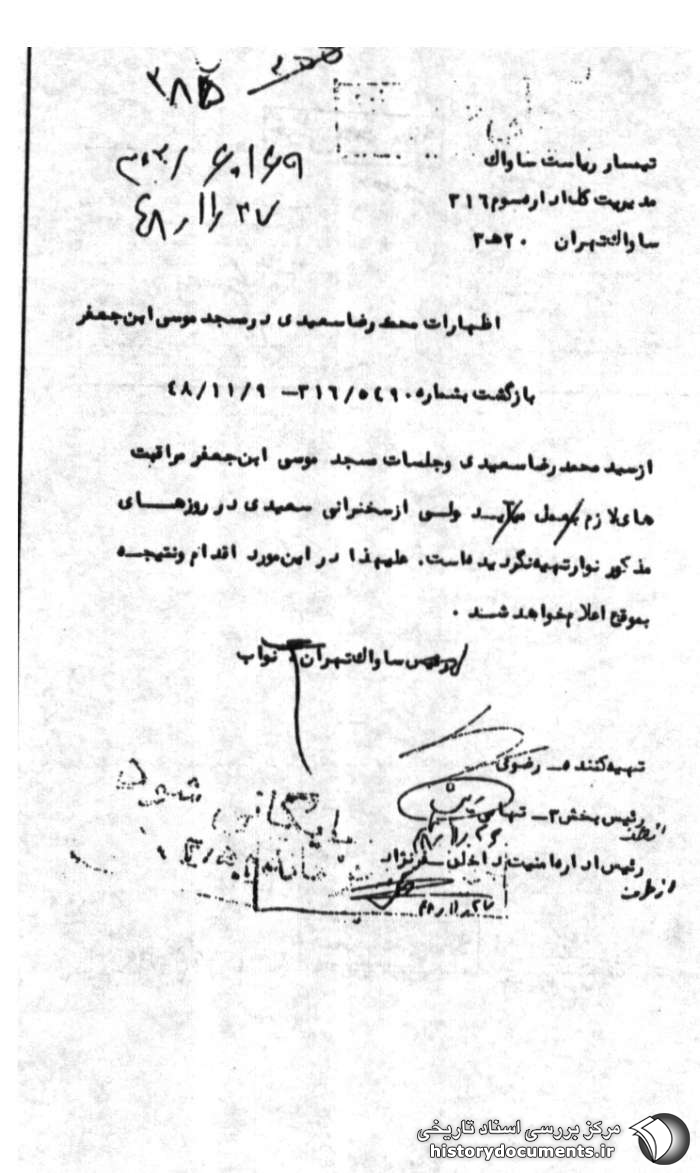 ۳۸۵
۴۸ ر ۱۱ ر ۲۷
تیمسار ریاست ساواك
مدیریت کل اداره سوم ۳۱۶
ساواك تهران ۲۰ هـ ۳
اظهارات محمد رضا سعیدی در مسجد موسی ابن جعفر
بازگشت بشماره ۳۱۶/۵۴۹۰ – ۴۸/۱۱/۹
از سید محمد رضا سعیدی و جلسات مسجد موسی ابن جعفر مراقبت
های لازم بعمل میآید ولی از سخنرانی سعیدی در روزهای
مذکور نوار تهیه نگردیده است. علیهذا در این مورد اقدام و نتیجه
بموقع اعلام خواهد شد .
رئیس ساواك تهران . نواب
تهیه کننده ـ رضوی
رئیس بخش ۳ ـ
از طرف
رئیس اداره امنیت داخلی ـ
از طرف
بایگانی شود
مرکز بررسی اسناد تاریخی
historydocuments.ir